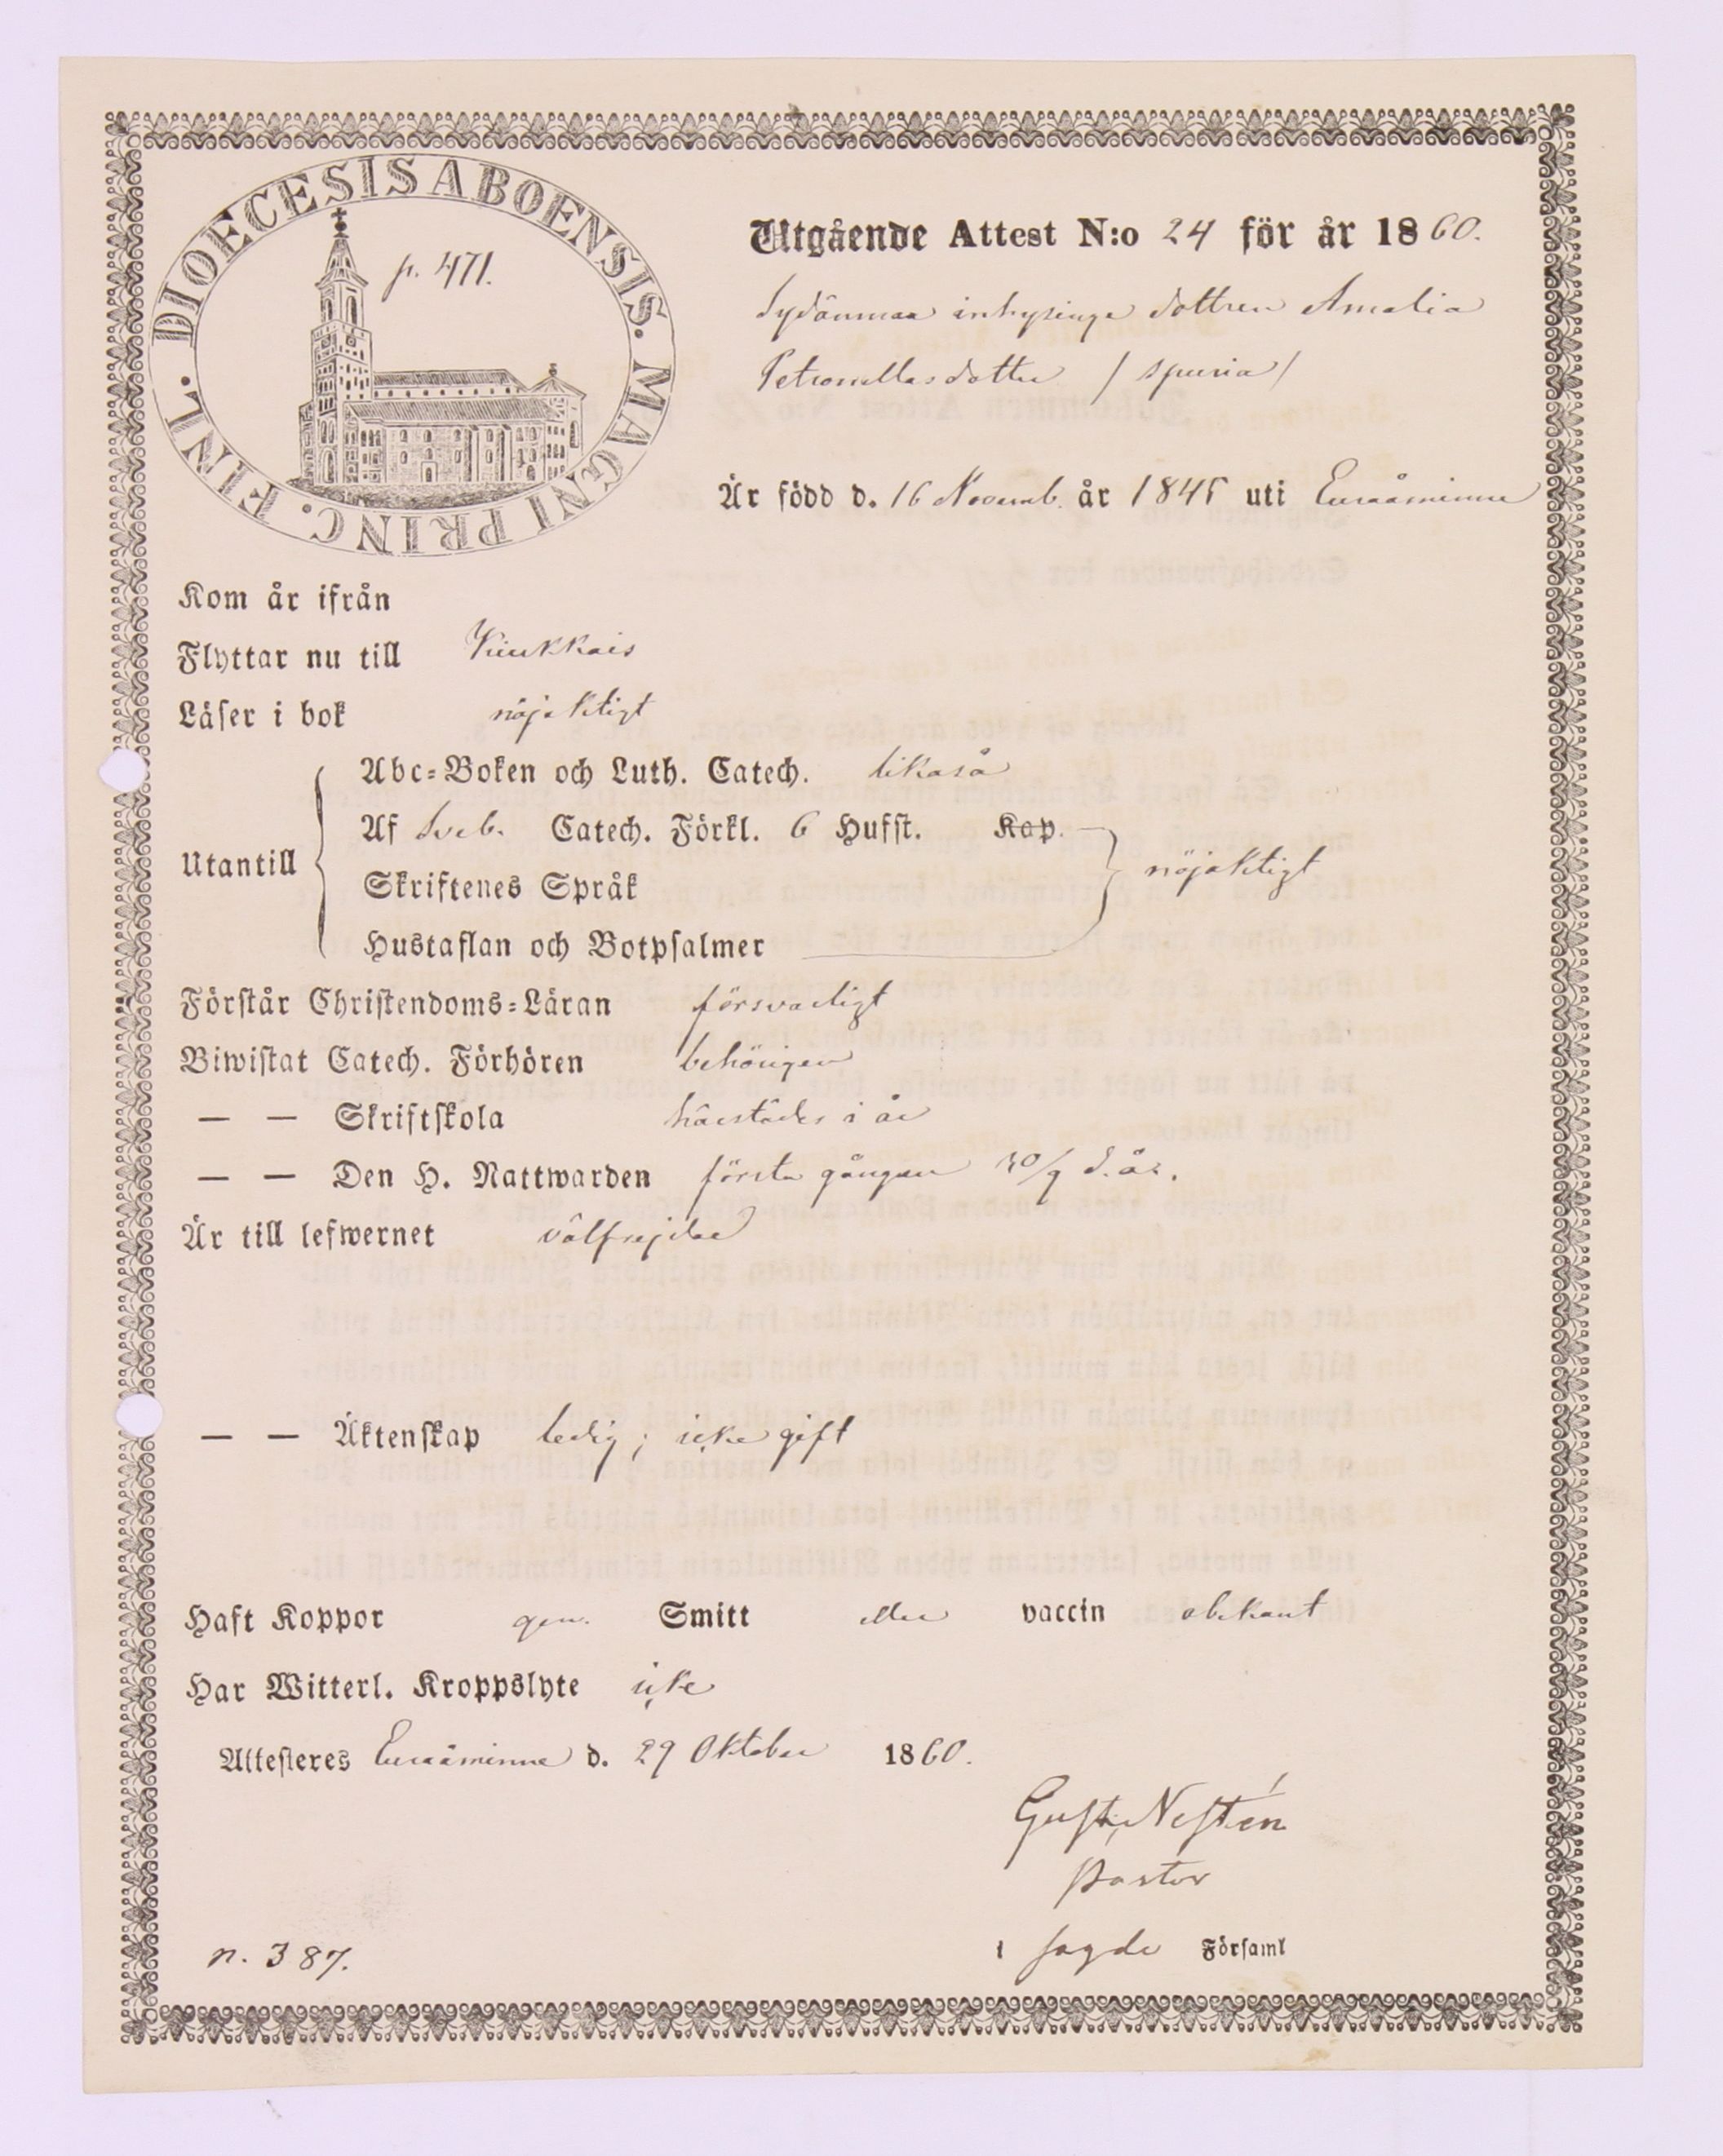 DIOECESIS ABOENSIS. MAGNI PRINC. FINL.
p. 471.
Utgående Attest N:o 24 för år 1860.
Sydänmaa inhysinge dottren Amalia
Petronellas dotter / spuria /
Är född d. 16 Novemb. år 1845 uti Euraåminne
Kom år ifrån
Flyttar nu till Kiukkais
Läser i bok nöjaktigt
Utantill
Abc-Boken och Luth. Catech. likaså
Af Sveb. Catech. Förkl. 6 Hufst. Kap.
Skriftenes Språk
nöjaktigt
Hustaflan och Botpsalmer
Förstår Christendoms-Läran försvarligt
Biwistat Catech. Förhören behörigen
— — Skriftskola härstädes i år
— — Den H. Nattwarden första gången 30/9 d. år.
Är till lefwernet välfrejdad
— — Äktenskap ledig; icke gift
Haft Koppor gen. Smitt eller vaccin obekant
Har Witterl. Kroppslyte icke
Attesteres Euraåminne d. 29 Oktober 1860.
Gust. Nestén
Pastor
i sagde Församl
n. 387.